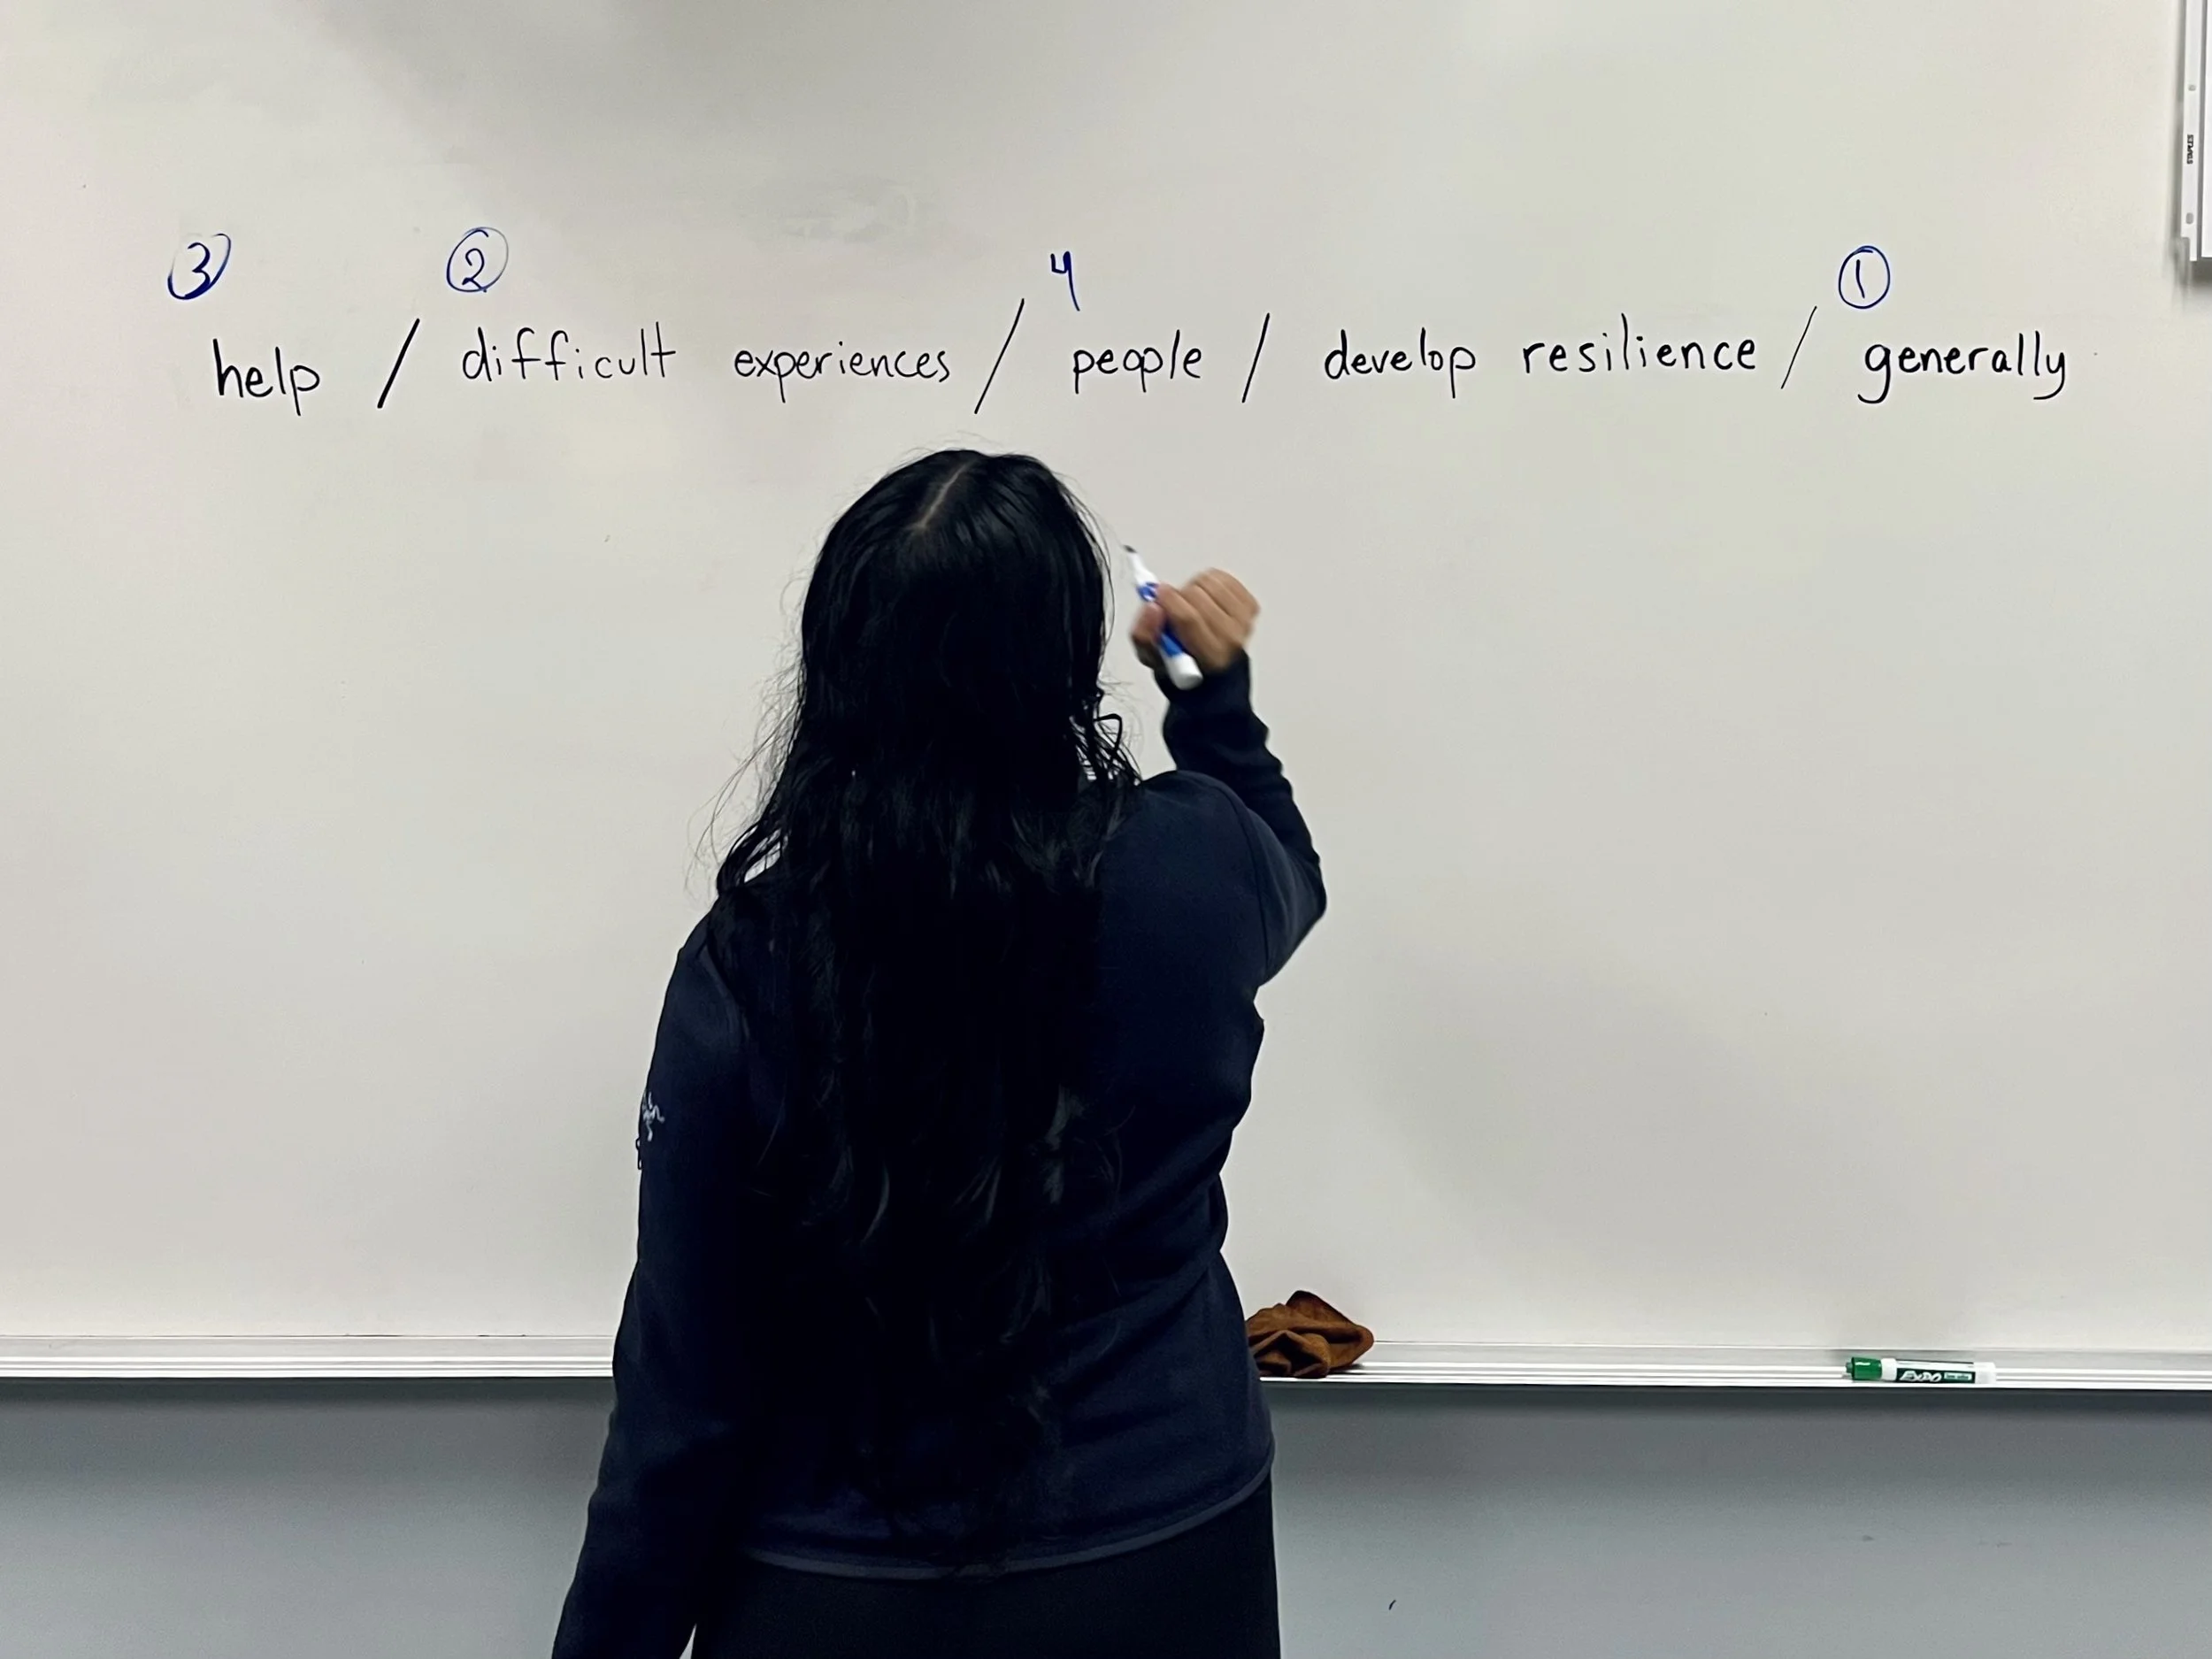 3 2 4 1
help / difficult experiences / people / develop resilience / generally
EXPO
STAPLES